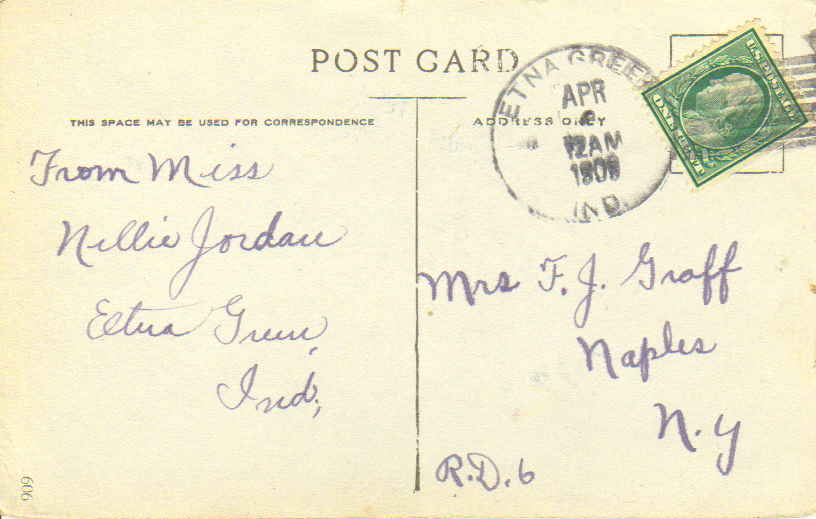 POST CARD
THIS SPACE MAY BE USED FOR CORRESPONDENCE
ADDRESS ONLY
ETNA GREEN
APR
12 AM
1909
IND.
U.S. POSTAGE
ONE CENT
From Miss
Nellie Jordan
Eetna Green,
Ind,
Mrs F. J. Graff
Naples
N.Y
R.D.6
909